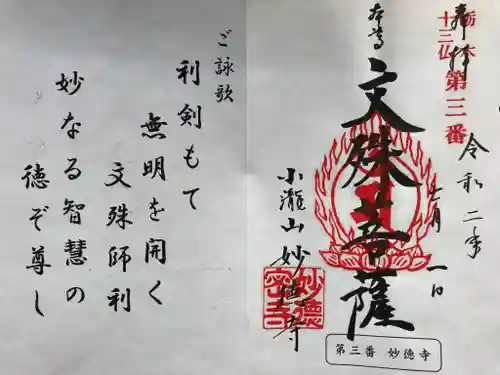 奉拝
栃木
十三仏 第三番
令和二年
七月一日
本尊
文殊菩薩
小瀧山 妙徳寺
妙徳密寺
第三番 妙徳寺
ご詠歌
利剣もて
無明を開く
文殊師利
妙なる智慧の
徳ぞ尊し